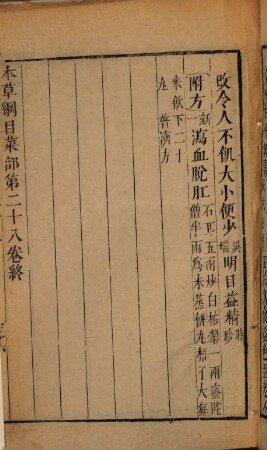 改令人不飢大小便少吳瑞明目益精時珍
附方新一瀉血脫肛石耳五兩炒白枯礬一兩密陀
僧半兩為末蒸餅丸梧子大每
米飲下二十
丸普濟方
本草綱目菜部第二十八卷終